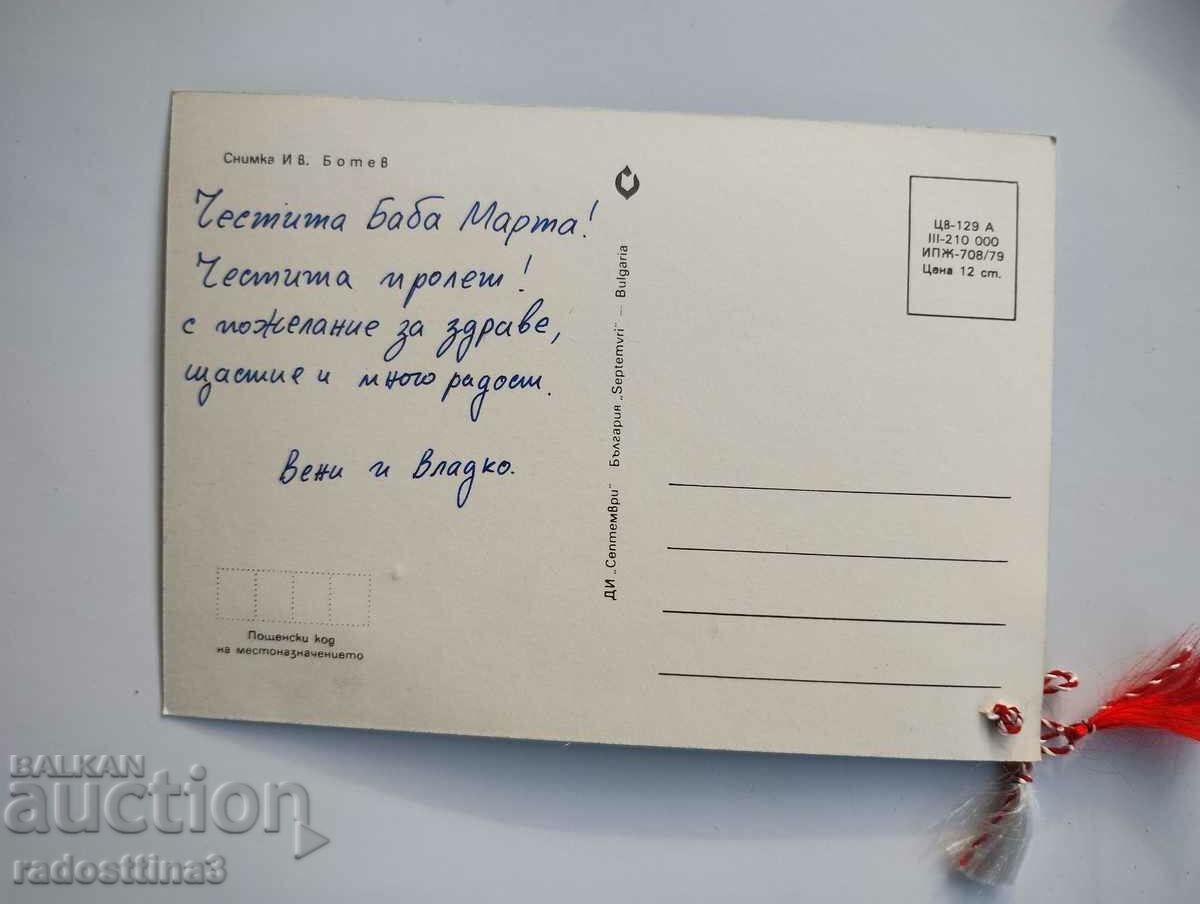 Снимка Ив. Ботев
Честита Баба Марта!
Честита пролет!
с пожелание за здраве,
щастие и много радост.
Вени и Владко.
Пощенски код
на местоназначението
ДИ „Септември" България „Septemvri" — Bulgaria
ЦВ-129 А
III-210 000
ИПЖ-708/79
Цена 12 ст.
BALKAN
auction
radosttina3